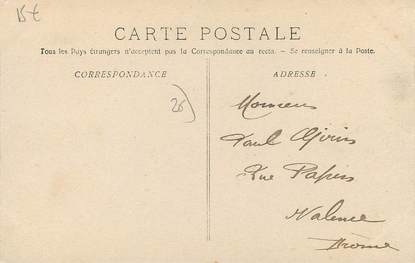 15€
CARTE POSTALE
Tous les Pays étrangers n'acceptent pas la Correspondance au recto. - Se renseigner à la Poste.
CORRESPONDANCE
ADRESSE
26)
Monsieur
Paul
Rue Papin
Valence
Drôme